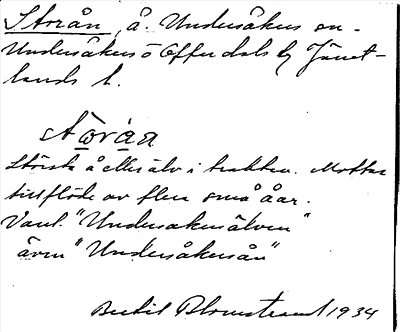 Storån, å. Undersåkers sn.
Undersåkers o Offerdals tg Jämt-
lands l.
Största å eller älv i trakten. Mottar
tillflöde av flera små åar.
Vanl. "Undersakersälven"
även "Undersåkersån"
Bertil Blomstrand 1934